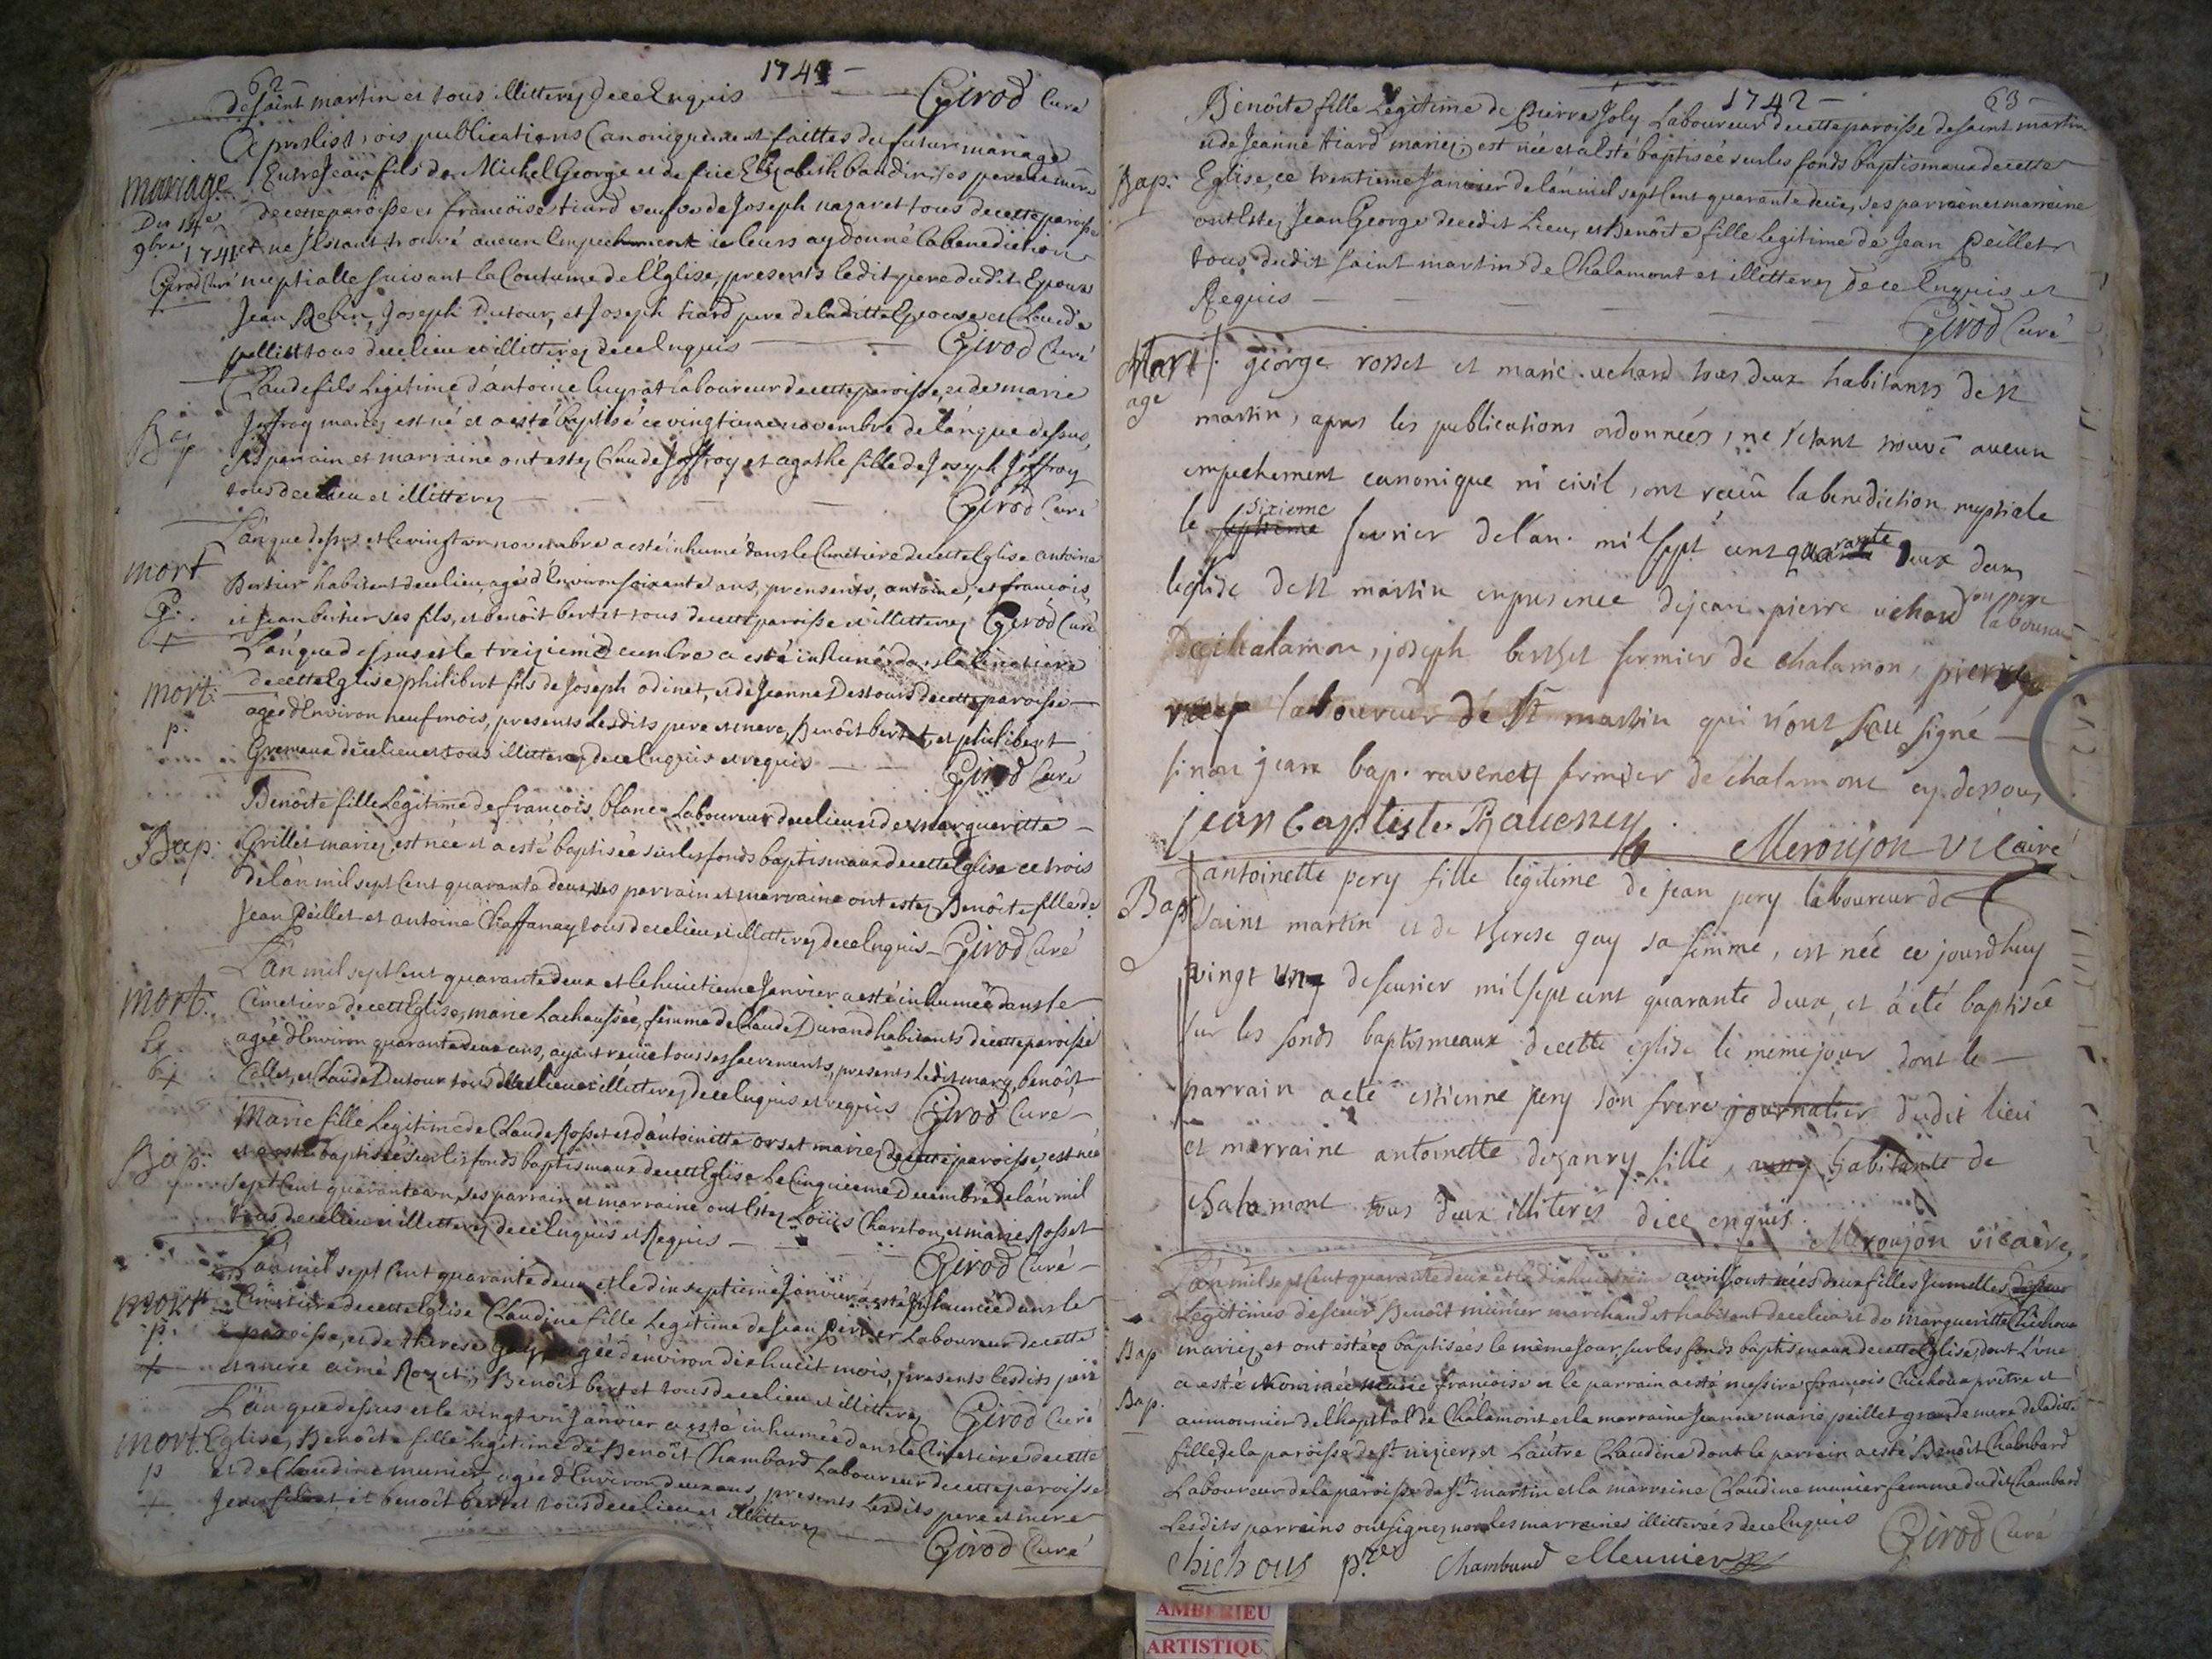 62
1741
de saint martin et tous illitterez de ce Enquis Girod Curé
Apres les trois publications Canoniquement faittes du futur mariage
mariage Entre Jean fils de Michel George et de feüe Elizabeth baudin ses pere et mere
Du 14e de cette paroisse et francoise tiard veufve de Joseph nazaret tous de cette paroisse
9bre 1741 et ne s'Estant trouvé aucun Empechement je leurs ay donné la benediction
Girod Curé nuptialle suivant la Coutume de l'Eglise, presents ledit pere dudit Epoux
Jean Robin, Joseph Dutour, et Joseph tiard pere de laditte Epouse et Claude
tous de ce lieu et illitterez de ce Enquis Girod Curé
Claude fils Legitime d'antoine laboureur de cette paroisse, et de marie
Bap Joffray mariez est né et a esté baptisé ce vingtieme novembre de l'an que dessus,
ses parrain et marraine ont estez Claude Joffray et agathe fille de Joseph Joffray
tous de ce lieu et illitterez Girod Curé
L'an que dessus et le vingt un novembre a esté inhumé dans le Cimetiere de cette Eglise antoine
mort Bertier habitant de ce lieu, agé d'Environ soixante ans, presents, antoine, et francois,
G. et Jean bertier ses fils, et benoît bertet tous de cette paroisse et illitterez Girod Curé
L'an que dessus et le treizieme decembre a esté inhumé dans le Cimetiere
mort. de cette Eglise philibert fils de Joseph odinet, et de Jeanne Destours de cette paroisse
p. agé d'Environ neuf mois, presents lesdits pere et mere, Benoît bertet, et philibert
Gremaux de ce lieu et tous illitterez de ce Enquis et requis Girod Curé
Benoîte fille Legitime de francois blanc Laboureur de ce lieu et de margueritte
Bap. Grillet mariez est née et a esté baptisée sur les fonds baptismaux de cette Eglise ce trois
de l'an mil sept Cent quarante deux, ses parrain et marraine ont estez Benoîte fille de
Jean Peillet et antoine Chaffanay tous de ce lieu et illitterez de ce Enquis Girod Curé
L'an mil sept Cent quarante deux et le huitieme Janvier a esté inhumée dans le
mort. Cimetiere de cette Eglise, marie Lachaussée, femme de Claude Durand habitants de cette paroisse
agée d'Environ quarante deux ans, ayant receüe tous ses sacrements, presents ledit mary, benoît
Collet, et Claude Dutour tous de ce lieu et illitterez de ce Enquis et requis Girod Curé
Marie fille Legitime de Claude Rosset et d'antoinette orset mariez de cette paroisse, est née
Bap. et a esté baptisée sur les fonds baptismaux de cette Eglise Le Cinquieme Decembre de l'an mil
sept Cent quarante un, ses parrain et marraine ont Estez Loüis Charton, et marie Rosset
tous de ce lieu et illitterez de ce Enquis et Requis Girod Curé
L'an mil sept Cent quarante deux et le dix septieme Janvier a esté Inhumée dans le
mort Cimetiere de cette Eglise Claudine fille Legitime de Jean perier Laboureur de cette
p. paroisse, et de therese agée d'environ dix huit mois, presents lesdits pere
et mere aimé Benoît bertet tous de ce lieu et illitterez Girod Curé
L'an que dessus et le vingt un Janvier a esté inhumée dans le Cimetiere de cette
mort. Eglise, Benoîte fille Legitime de Benoît Chambard Laboureur de cette paroisse
p et de Claudine munier, agée d'Environ deux ans, presents lesdits pere et mere
Jean et benoît bertet tous de ce lieu et illitterez
Girod Curé
1742
63
Benoîte fille Legitime de Pierre Joly Laboureur de cette paroisse de saint martin
et de Jeanne tiard mariez, est née et a Esté baptisée sur les fonds baptismaux de cette
Bap. Eglise, ce trentieme Janvier de l'an mil sept Cent quarante deux, ses parrain et marraine
ont Estez Jean George de cedit Lieu, et Benoîte fille Legitime de Jean Peillet
tous dudit saint martin de Chalamont et illitterez de ce Enquis et
Requis
Girod Curé
Mari age
george rosset et marie uchard tous deux habitants de st
martin, apres les publications ordonnées, ne s'etant trouvé aucun
empechement canonique ni civil, ont reçeu la benediction nuptiale
le septieme sixieme fevrier de l'an mil sept cent quarante deux dans
leglise de st martin en presence de jean pierre uchard son pere laboureur
de chalamon, joseph berthet fermier de chalamon, pierre
laboureur de st martin qui n'ont sçu signé
sinon jean bap. ravenet fermier de chalamont cy dessous
jean baptiste Raveney Meroujon Vicaire
Bap antoinette pery fille legitime de jean pery laboureur de
saint martin et de therese gay sa femme, est née ce jourdhuy
vingt un de fevrier mil sept cent quarante deux, et a été baptisée
sur les fonds baptismeaux de cette eglise le meme jour dont le
parrain a eté estienne pery son frere journalier dudit lieu
et marraine antoinette dezanry fille, habitante de
Chalamont tous deux illiterés de ce enquis.
Meroujon vicaire
L'an mil sept Cent quarante deux et le dixhuitieme avril sont nées deux filles Jumelles
Legitimes de sieur Benoît münier marchand et habitant de ce lieu et de margueritte Chichoux
Bap mariez, et ont estées baptisées le même Jour sur les fonds baptismaux de cette Eglise, dont L'une
a esté Nommée marie francoise et le parrain a esté messire francois Chichoux prêtre et
Bap. aumonnier de l'hopital de Chalamont et la marraine Jeanne marie peillet grande mere de laditte
fille, de la paroisse de st nizier, et L'autre Claudine dont le parrain a esté Benoît Chambard
Laboureur de la paroisse de st martin et la marraine Claudine munier femme dudit Chambard
Lesdits parrains ont signez non les marraines illitterées de ce Enquis Girod Curé
Chichoux ptre Chambard Meunier
AMBERIEU
ARTISTIQU